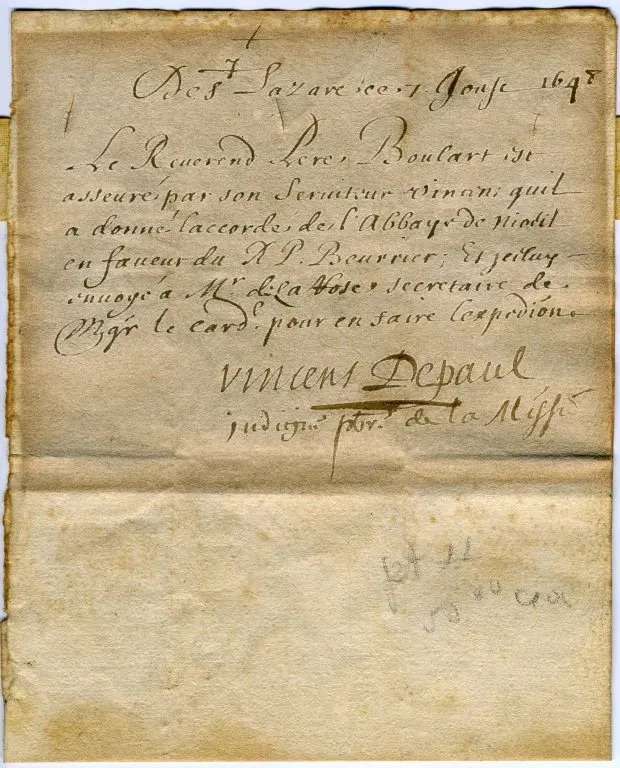 De St Lazare ce 7 1648
Le Reverend Pere Boulart est
asseuré par son Serviteur vincent quil
a donné laccorde de l'Abbaye de
en faveur du R P. Beurrier; Et
envoyé a Mr de la secretaire de
Mgr le card. pour en faire lexpedion.
vincent Depaul
indigne pbre de la Miss